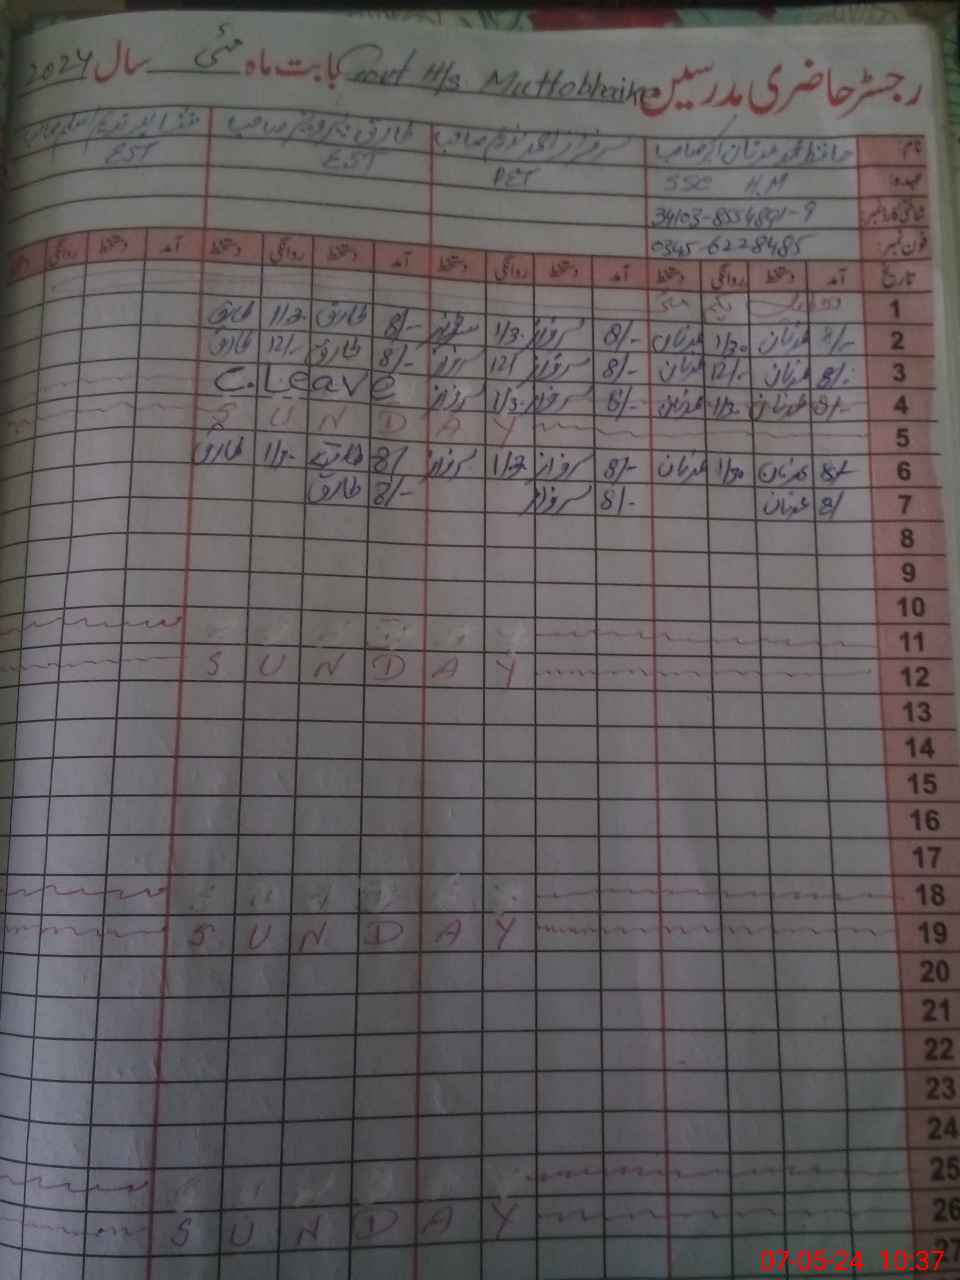 رجسٹر حاضری مدرسین Govt H/s Muttobhaike بابت ماہ مئی سال 2024
نام: حافظ محمد عدنان صاحب سرفراز احمد صاحب طارق صاحب
عہدہ: SSE H.M PET EST EST
شناختی کارڈ نمبر: 34103-8554891-9
فون نمبر: 0345-6228485
تاریخ آمد دستخط روانگی دستخط آمد دستخط روانگی دستخط آمد دستخط روانگی دستخط آمد دستخط روانگی
1
2 8/- عدنان 1/30 عدنان 8/- سرفراز 1/30 سرفراز 8/- طارق 1/30 طارق
3 8/- عدنان 12/- عدنان 8/- سرفراز 12/ سرفراز 8/- طارق 12/- طارق
4 8/- عدنان 1/30 عدنان 8/- سرفراز 1/30 سرفراز C. Leave
5 SUNDAY
6 8/- عدنان 1/30 عدنان 8/- سرفراز 1/30 سرفراز 8/ طارق 1/30 طارق
7 8/ عدنان 8/- سرفراز 8/- طارق
8
9
10
11
12 SUNDAY
13
14
15
16
17
18
19 SUNDAY
20
21
22
23
24
25
26 SUNDAY
27
07-05-24 10:37